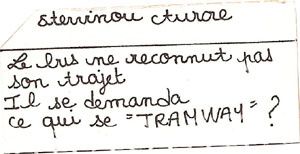 Stervinou Aurore
Le bus ne reconnut pas
son trajet
Il se demanda
ce qui se "TRAMWAY" ?